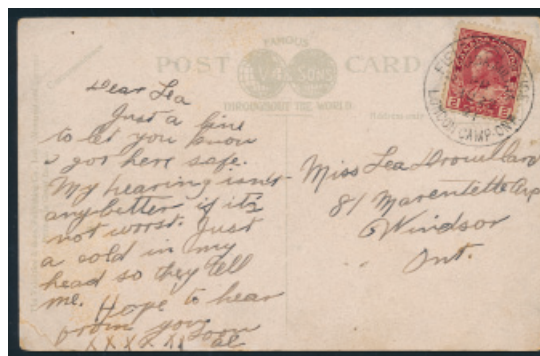 FAMOUS
POST CARD
& SONS
THROUGHOUT THE WORLD
Address only
LONDON CAMP-ONT
2 2
Dear Lea
Just a line
to let you know
I got here safe.
My hearing isn't
any better if its
not worst. Just
a cold in my
head so they tell
me. Hope to hear
from you soon
XXXXXX al
Miss Lea Drouillard
81 Marentette Ave
Windsor
Ont.